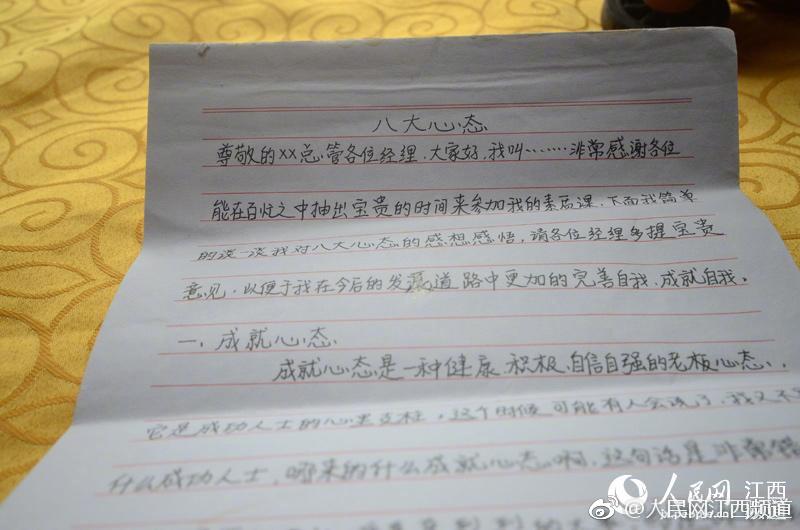 八大心态
尊敬的XX总管各位经理、大家好,我叫……非常感谢各位
能在百忙之中抽出宝贵的时间来参加我的素质课、下面我简单
的谈一谈我对八大心态的感想感悟,请各位经理多提宝贵
意见,以便于我在今后的发展道路中更加的完善自我、成就自我。
一、成就心态
成就心态是一种健康、积极、自信自强的老板心态、
它是成功人士的心里支柱,这个时候可能有人会说了,我又不
什么成功人士,哪来的什么成就心态啊,这句话是非常错
人民网 江西
@人民网江西频道